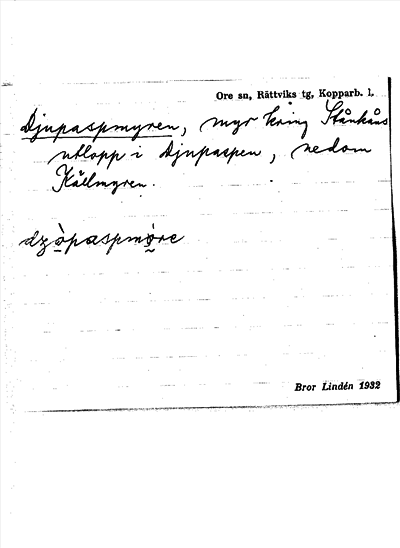 Ore sn, Rättviks tg, Kopparb. l.
Djupaspmyren, myr kring Stånkåns
utlopp i Djupaspen, nedom
Källmyren.
Bror Lindén 1932